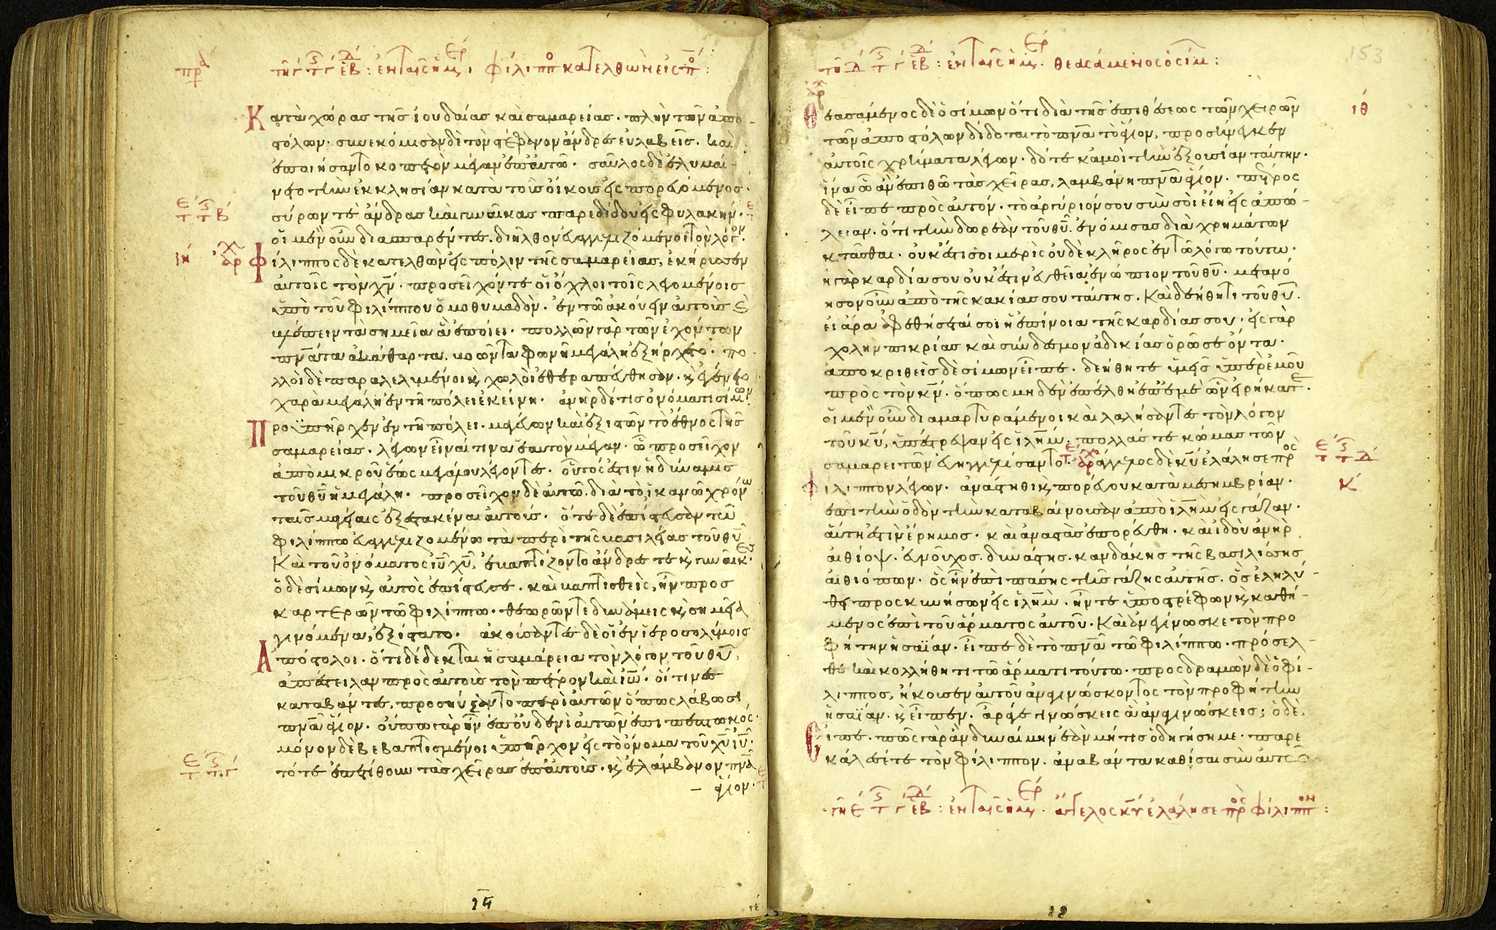 Κατὰ χώρας τῆς ἰουδαίας καὶ σαμαρείας· πλὴν τῶν ἀπο
στόλων· συνεκόμισαν δὲ τὸν στέφανον ἄνδρες εὐλαβεῖς. καὶ
ἐποιήσαντο κοπετὸν μέγαν ἐπ' αὐτῶ· σαῦλος δὲ ἐλυμαί
νετο τὴν ἐκκλησίαν κατὰ τοὺς οἴκους εἰσπορευόμενος·
σύρων τὲ ἄνδρας καὶ γυναῖκας παρεδίδου εἰς φυλακήν·
οἱ μὲν οὖν διασπαρέντες· διῆλθον εὐαγγελιζόμενοι τὸν λόγον·
ιη Φίλιππος δὲ κατελθὼν εἰς πόλιν τῆς σαμαρείας, ἐκήρυσσεν
αὐτοῖς τὸν χ̅ν̅· προσεῖχόν τε οἱ ὄχλοι τοῖς λεγομένοις
ὑπὸ τοῦ φιλίππου ὁμοθυμαδόν· ἐν τῶ ἀκούειν αὐτοὺς καὶ
βλέπειν τὰ σημεῖα ἃ ἐποίει· πολλῶν γὰρ τῶν ἐχόντων
π̅ν̅α̅τα ἀκάθαρτα, βοῶντα φωνῆ μεγάλη ἐξήρχετο· πο
λλοὶ δὲ παραλελυμένοι καὶ χωλοὶ ἐθεραπεύθησαν· καὶ ἐγένετο
χαρὰ μεγάλη ἐν τῆ πόλει ἐκείνη· ἀνὴρ δέ τις ὀνόματι σίμων
Προϋπῆρχεν ἐν τῆ πόλει· μαγεύων καὶ ἐξιστῶν τὸ ἔθνος τῆς
σαμαρείας. λέγων εἶναί τινα ἑαυτὸν μέγαν· ὧ προσεῖχον
ἀπὸ μικροῦ ἕως μεγάλου λέγοντες· οὗτός ἐστιν ἡ δύναμις
τοῦ θ̅υ̅ ἡ μεγάλη· προσεῖχον δὲ αὐτῶ· διὰ τὸ ἱκανῶ χρόνω
ταῖς μαγείαις ἐξεστακέναι αὐτούς· ὅτε δὲ ἐπίστευσαν τῶ
φιλίππω εὐαγγελιζομένω τὰ περὶ τῆς βασιλείας τοῦ θ̅υ̅
Καὶ τοῦ ὀνόματος ι̅υ̅ χ̅υ̅, ἐβαπτίζοντο ἄνδρες τὲ καὶ γυναῖκες·
ὁ δὲ σίμων καὶ αὐτὸς ἐπίστευσε· καὶ βαπτισθεὶς, ἦν προσ
καρτερῶν τῶ φιλίππω· θεωρῶν τε δυνάμεις καὶ σημεῖα
γινόμενα, ἐξίστατο· ἀκούσαντες δὲ οἱ ἐν ἱεροσολύμοις
Ἀπόστολοι· ὅτι δέδεκται ἡ σαμάρεια τὸν λόγον τοῦ θ̅υ̅,
ἀπέστειλαν πρὸς αὐτοὺς τὸν πέτρον καὶ ἰω̅· οἵτινες
καταβάντες, προσηύξαντο περὶ αὐτῶν ὅπως λάβωσι
π̅ν̅α̅ ἅγιον. οὔπω γὰρ ἦν ἐπ' οὐδενὶ αὐτῶν ἐπιπεπτωκός·
μόνον δὲ βεβαπτισμένοι· ὑπῆρχον εἰς τὸ ὄνομα τοῦ χ̅υ̅ ι̅υ̅·
τότε ἐπετίθουν τὰς χεῖρας ἐπ' αὐτοὺς· καὶ ἐλάμβανον π̅ν̅α̅
ἅγιον·
153
θεασάμενος ὁ σίμ:
Θεασάμενος δὲ ὁ σίμων ὅτι διὰ τῆς ἐπιθέσεως τῶν χειρῶν ιθ
τῶν ἀποστόλων δίδοται τὸ π̅ν̅α̅ τὸ ἅγιον, προσήνεγκεν
αὐτοῖς χρήματα λέγων· δότε κἀμοὶ τὴν ἐξουσίαν ταύτην·
ἵνα ὧ ἂν ἐπιθῶ τὰς χεῖρας, λαμβάνη π̅ν̅α̅ ἅγιον· πέτρος
δὲ εἶπε πρὸς αὐτόν· τὸ ἀργύριόν σου σὺν σοὶ εἴη εἰς ἀπώ
λειαν· ὅτι τὴν δωρεὰν τοῦ θ̅υ̅ ἐνόμισας διὰ χρημάτων
κτᾶσθαι· οὐκ ἔστι σοι μερὶς οὐδὲ κλῆρος ἐν τῶ λόγω τούτω·
ἡ γὰρ καρδία σου οὐκ ἔστιν εὐθεῖα ἐνώπιον τοῦ θ̅υ̅· μετανό
ησον οὖν ἀπὸ τῆς κακίας σου ταύτης. Καὶ δεήθητι τοῦ θ̅υ̅·
εἰ ἄρα ἀφεθήσεταί σοι ἡ ἐπίνοια τῆς καρδίας σου· εἰς γὰρ
χολὴν πικρίας καὶ σύνδεσμον ἀδικίας ὁρῶ σε ὄντα·
ἀποκριθεὶς δὲ σίμων εἶπε· δεήθητε ὑμεῖς ὑπὲρ ἐμοῦ
πρὸς τὸν κ̅ν̅· ὅπως μηδὲν ἐπέλθη ἐπ' ἐμὲ ὧν εἰρήκατε·
οἱ μὲν οὖν διαμαρτυράμενοι καὶ λαλήσαντες τὸν λόγον
τοῦ κ̅υ̅, ὑπέστρεψαν εἰς ἱλη̅μ̅· πολλάς τε κώμας τῶν
σαμαρειτῶν εὐηγγελίσαντο· ἄγγελος δὲ κ̅υ̅ ἐλάλησε πρὸς
Φίλιππον λέγων· ἀνάστηθι καὶ πορεύου κατὰ μεσημβρίαν· κ
ἐπὶ τὴν ὁδὸν τὴν καταβαίνουσαν ἀπὸ ἱλη̅μ̅ εἰς γάζαν·
αὕτη ἐστὶν ἔρημος· καὶ ἀναστὰς ἐπορεύθη· καὶ ἰδοὺ ἀνὴρ
αἰθίοψ· εὐνοῦχος· δυνάστης· κανδάκης τῆς βασιλίσσης
αἰθιόπων· ὃς ἦν ἐπὶ πάσης τῆς γάζης αὐτῆς· ὃς ἐληλύ
θει προσκυνήσων εἰς ἱλη̅μ̅· ἦν τε ὑποστρέφων καὶ καθή
μενος ἐπὶ τοῦ ἅρματος αὐτοῦ· Καὶ ἀνεγίνωσκε τὸν προ
φήτην ἠσαΐαν· εἶπε δὲ τὸ π̅ν̅α̅ τῶ φιλίππω· πρόσελ
θε καὶ κολλήθητι τῶ ἅρματι τούτω· προσδραμὼν δὲ ὁ φί
λιππος, ἤκουσεν αὐτοῦ ἀναγινώσκοντος τὸν προφήτην
ἠσαΐαν· καὶ εἶπεν· ἆρά γε γινώσκεις ἃ ἀναγινώσκεις; ὁ δὲ·
Εἶπε· πῶς γὰρ ἂν δυναίμην ἐὰν μή τις ὁδηγήση με· παρε
κάλεσέ τε τὸν φίλιππον· ἀναβάντα καθίσαι σὺν αὐτῶ
ἄγγελος κ̅υ̅ ἐλάλησε πρ φίλιππον: